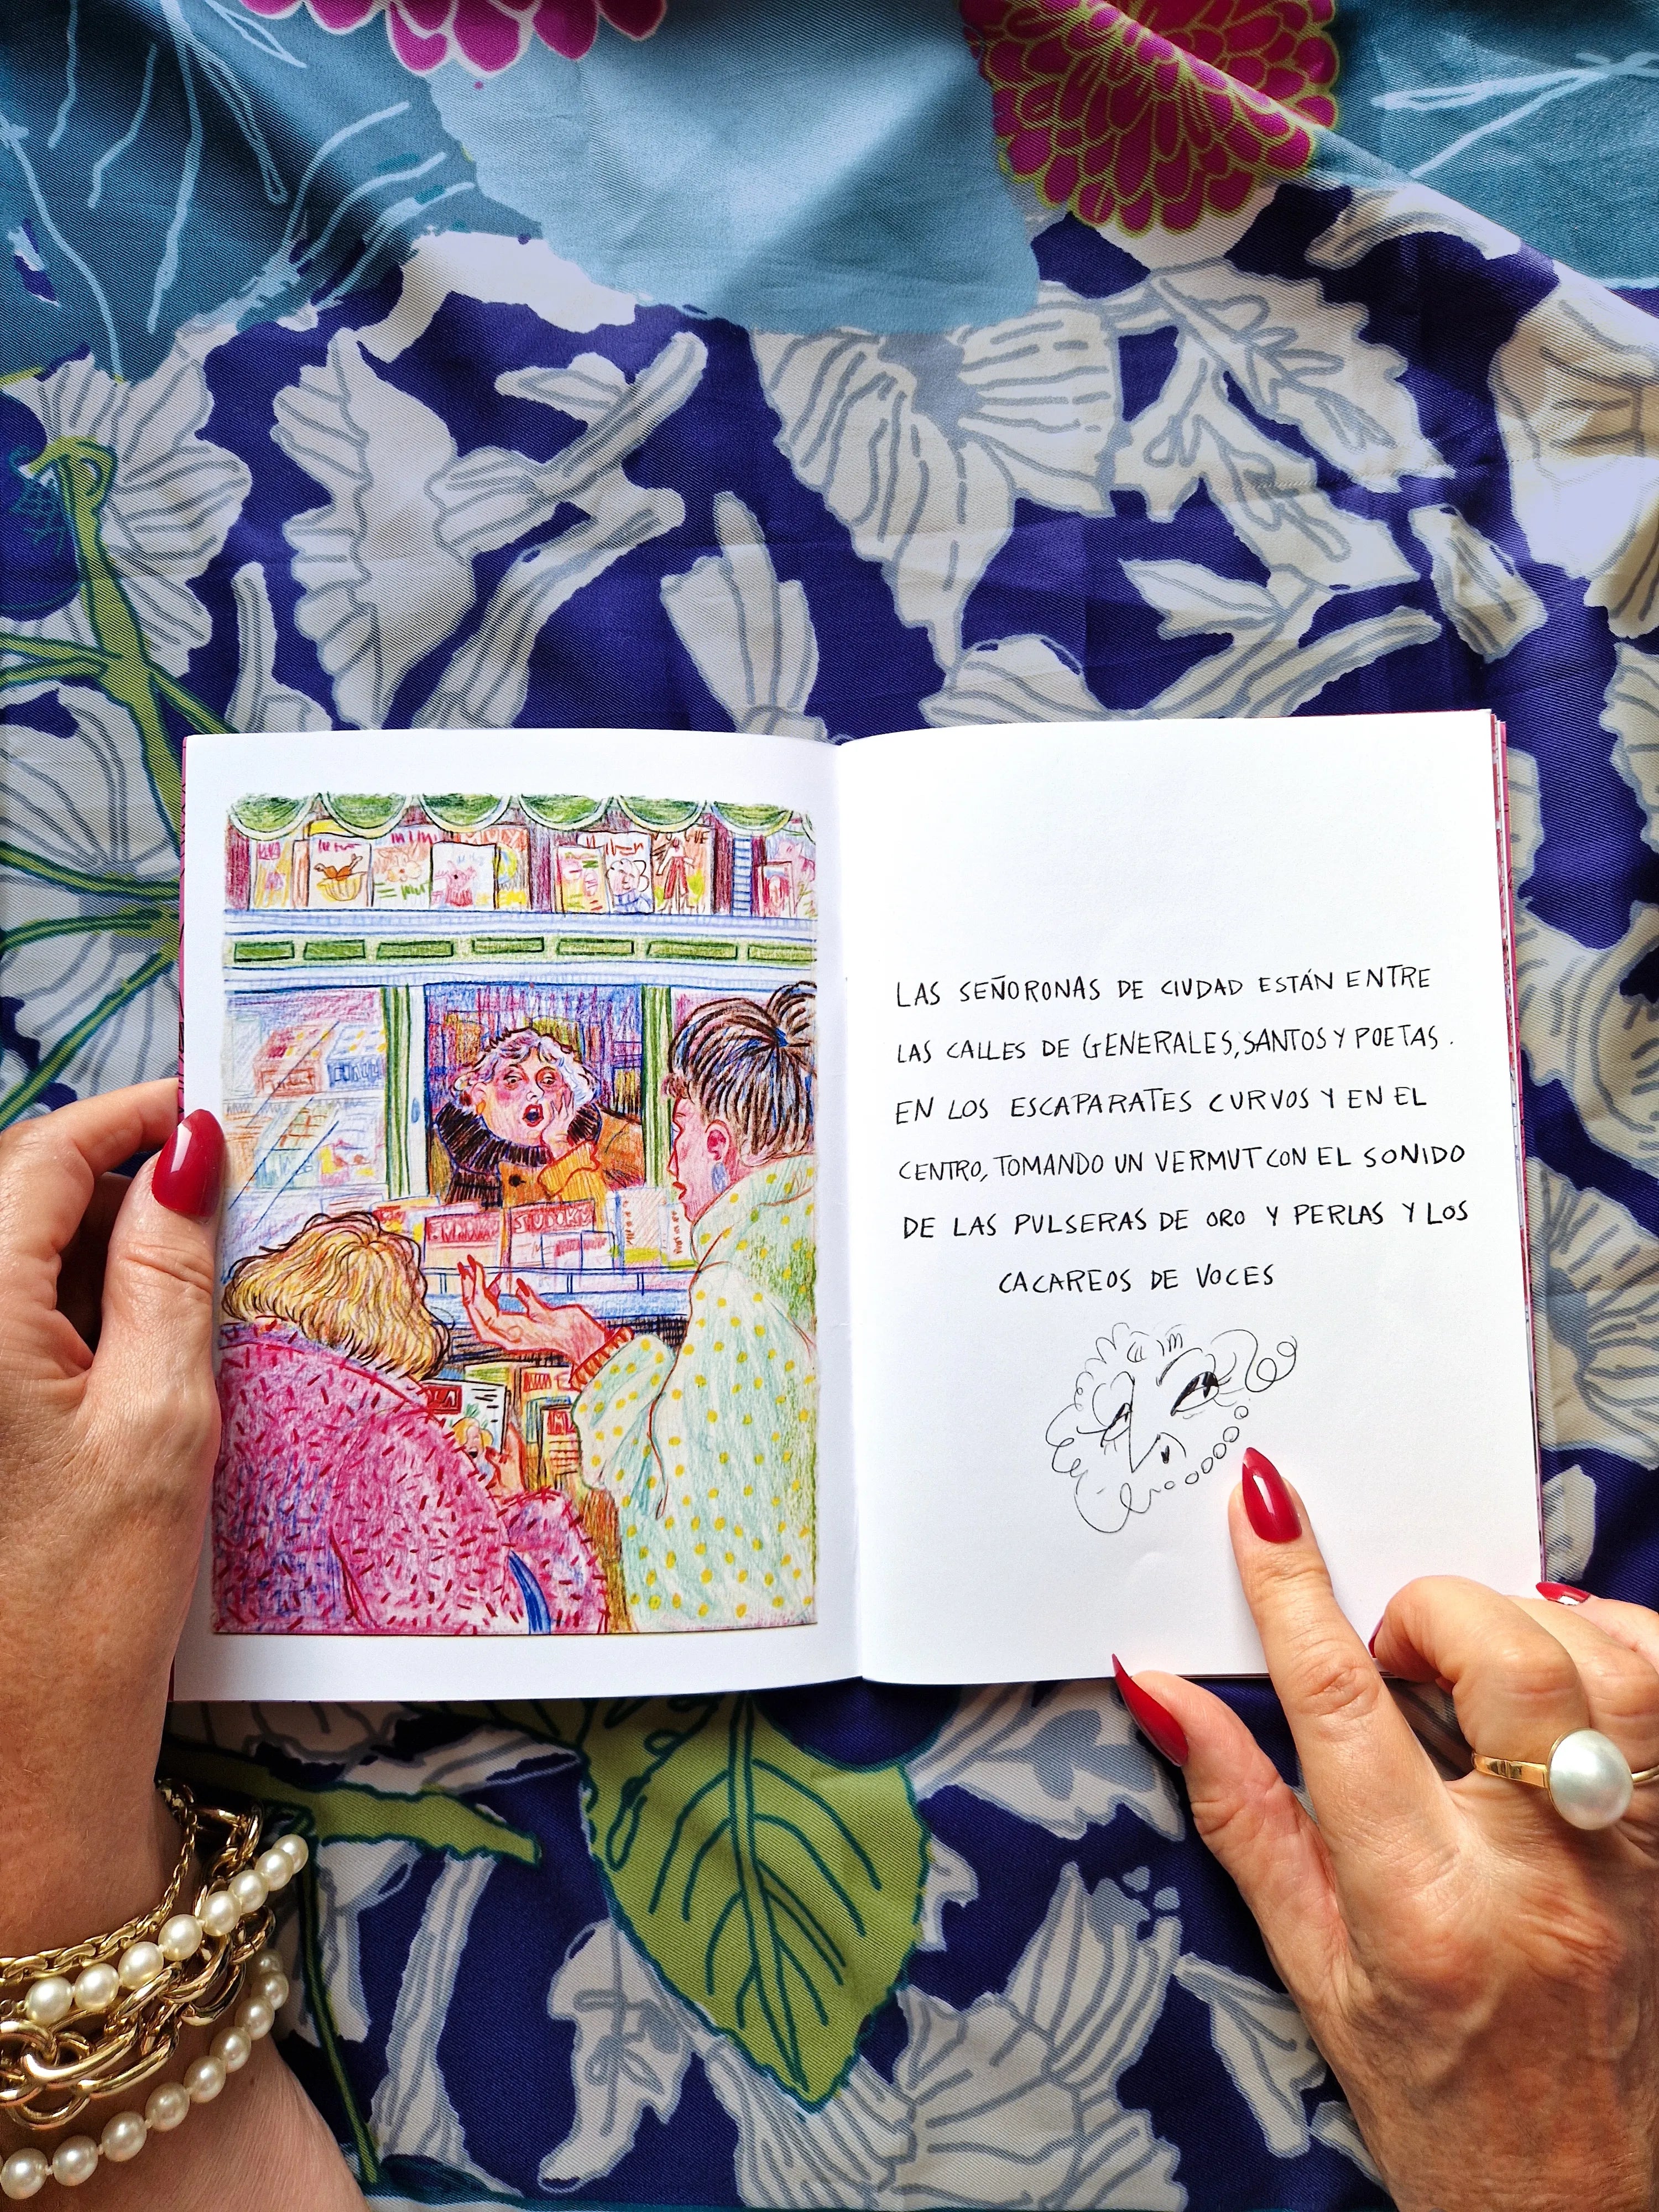 SUDOKU
LAS SEÑORONAS DE CIUDAD ESTÁN ENTRE
LAS CALLES DE GENERALES, SANTOS Y POETAS.
EN LOS ESCAPARATES CURVOS Y EN EL
CENTRO, TOMANDO UN VERMUT CON EL SONIDO
DE LAS PULSERAS DE ORO Y PERLAS Y LOS
CACAREOS DE VOCES